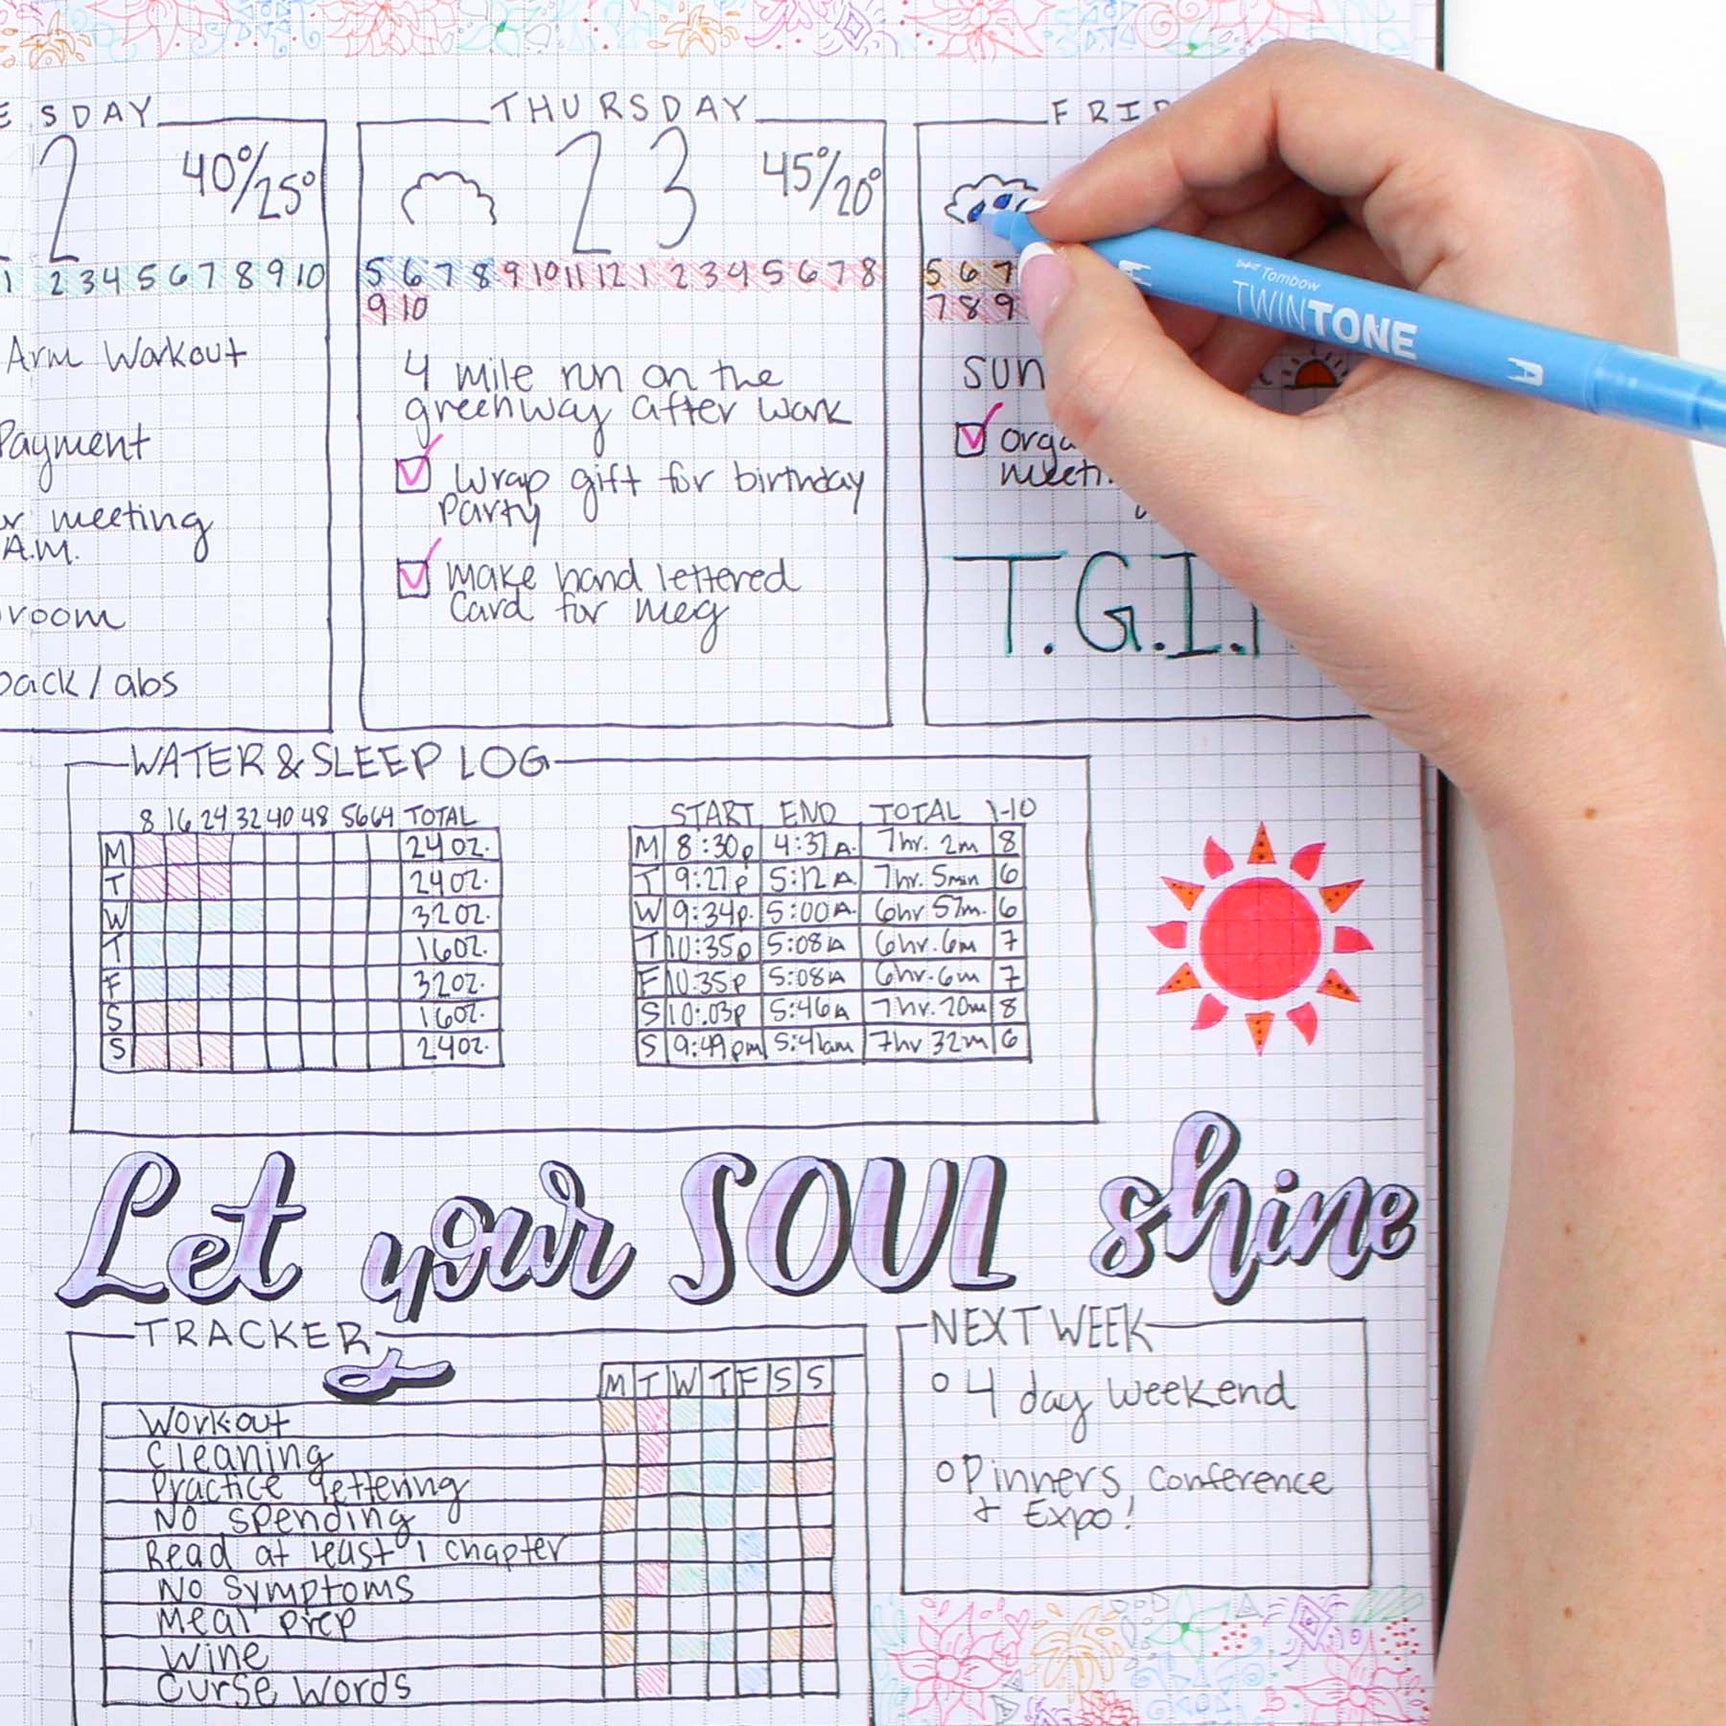 ESDAY
2
40°/25°
1 2 3 4 5 6 7 8 9 10
Arm Workout
Payment
meeting
A.M.
room
back / abs
THURSDAY
23
45°/20°
5 6 7 8 9 10 11 12 1 2 3 4 5 6 7 8
9 10
4 mile run on the
greenway after work
wrap gift for birthday
Party
make hand lettered
Card for meg
FRI
5 6 7
7 8 9
SUN
orga
meeti
T.G.I.
Tombow
TWINTONE
WATER & SLEEP LOG
8 16 24 32 40 48 56 64 TOTAL
M 24 oz.
T 24 oz.
W 32 oz.
T 16 oz.
F 32 oz.
S 16 oz.
S 24 oz.
START END TOTAL 1-10
M 8:30p 4:37A. 7hr. 2m 8
T 9:27p 5:12A 7hr. 5min 6
W 9:34p. 5:00A. 6hr 57m. 6
T 10:35p 5:08A 6hr. 6m 7
F 10:35p 5:08A 6hr. 6m 7
S 10:03p 5:46A 7hr. 20m 8
S 9:49pm 5:41am 7hr 32m 6
Let your SOUL shine
TRACKER
M T W T F S S
Workout
Cleaning
Practice lettering
No spending
Read at least 1 chapter
No symptoms
Meal prep
Wine
Curse words
NEXT WEEK
4 day weekend
Pinners Conference
& Expo!